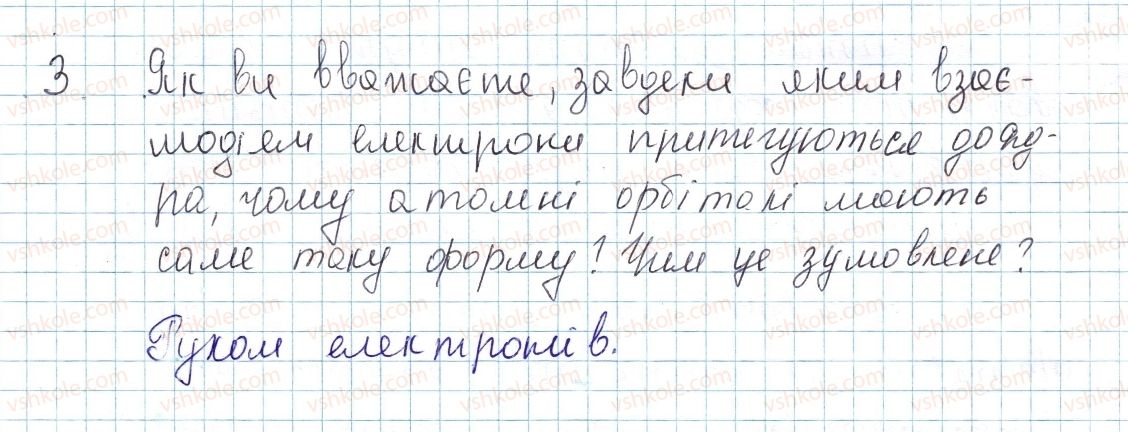 3. Як ви вважаєте, завдяки яким взає-
модіям електрони притягуються до яд-
ра, чому атомні орбіталі мають
саме таку форму? Чим це зумовлене?
Рухом електронів.